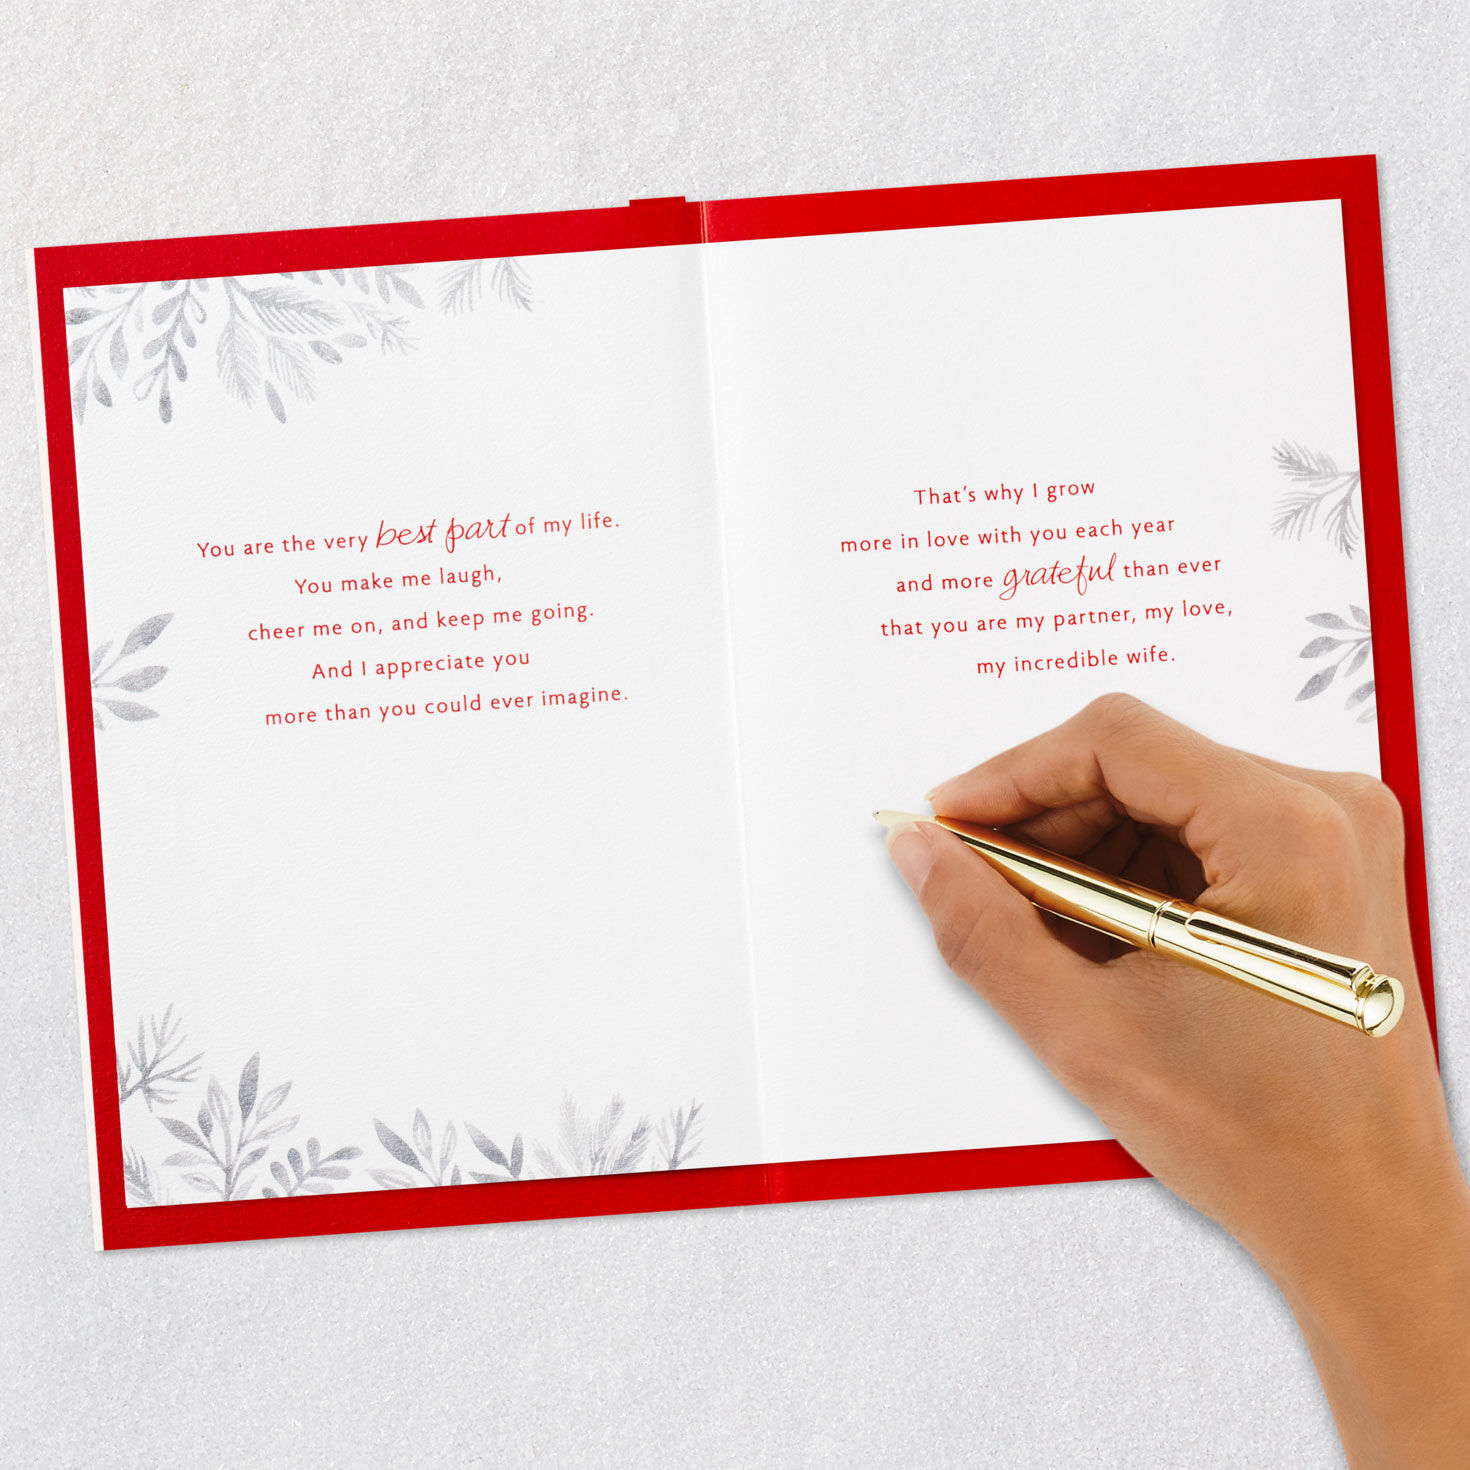 You are the very best part of my life.
You make me laugh,
cheer me on, and keep me going.
And I appreciate you
more than you could ever imagine.
That's why I grow
more in love with you each year
and more grateful than ever
that you are my partner, my love,
my incredible wife.